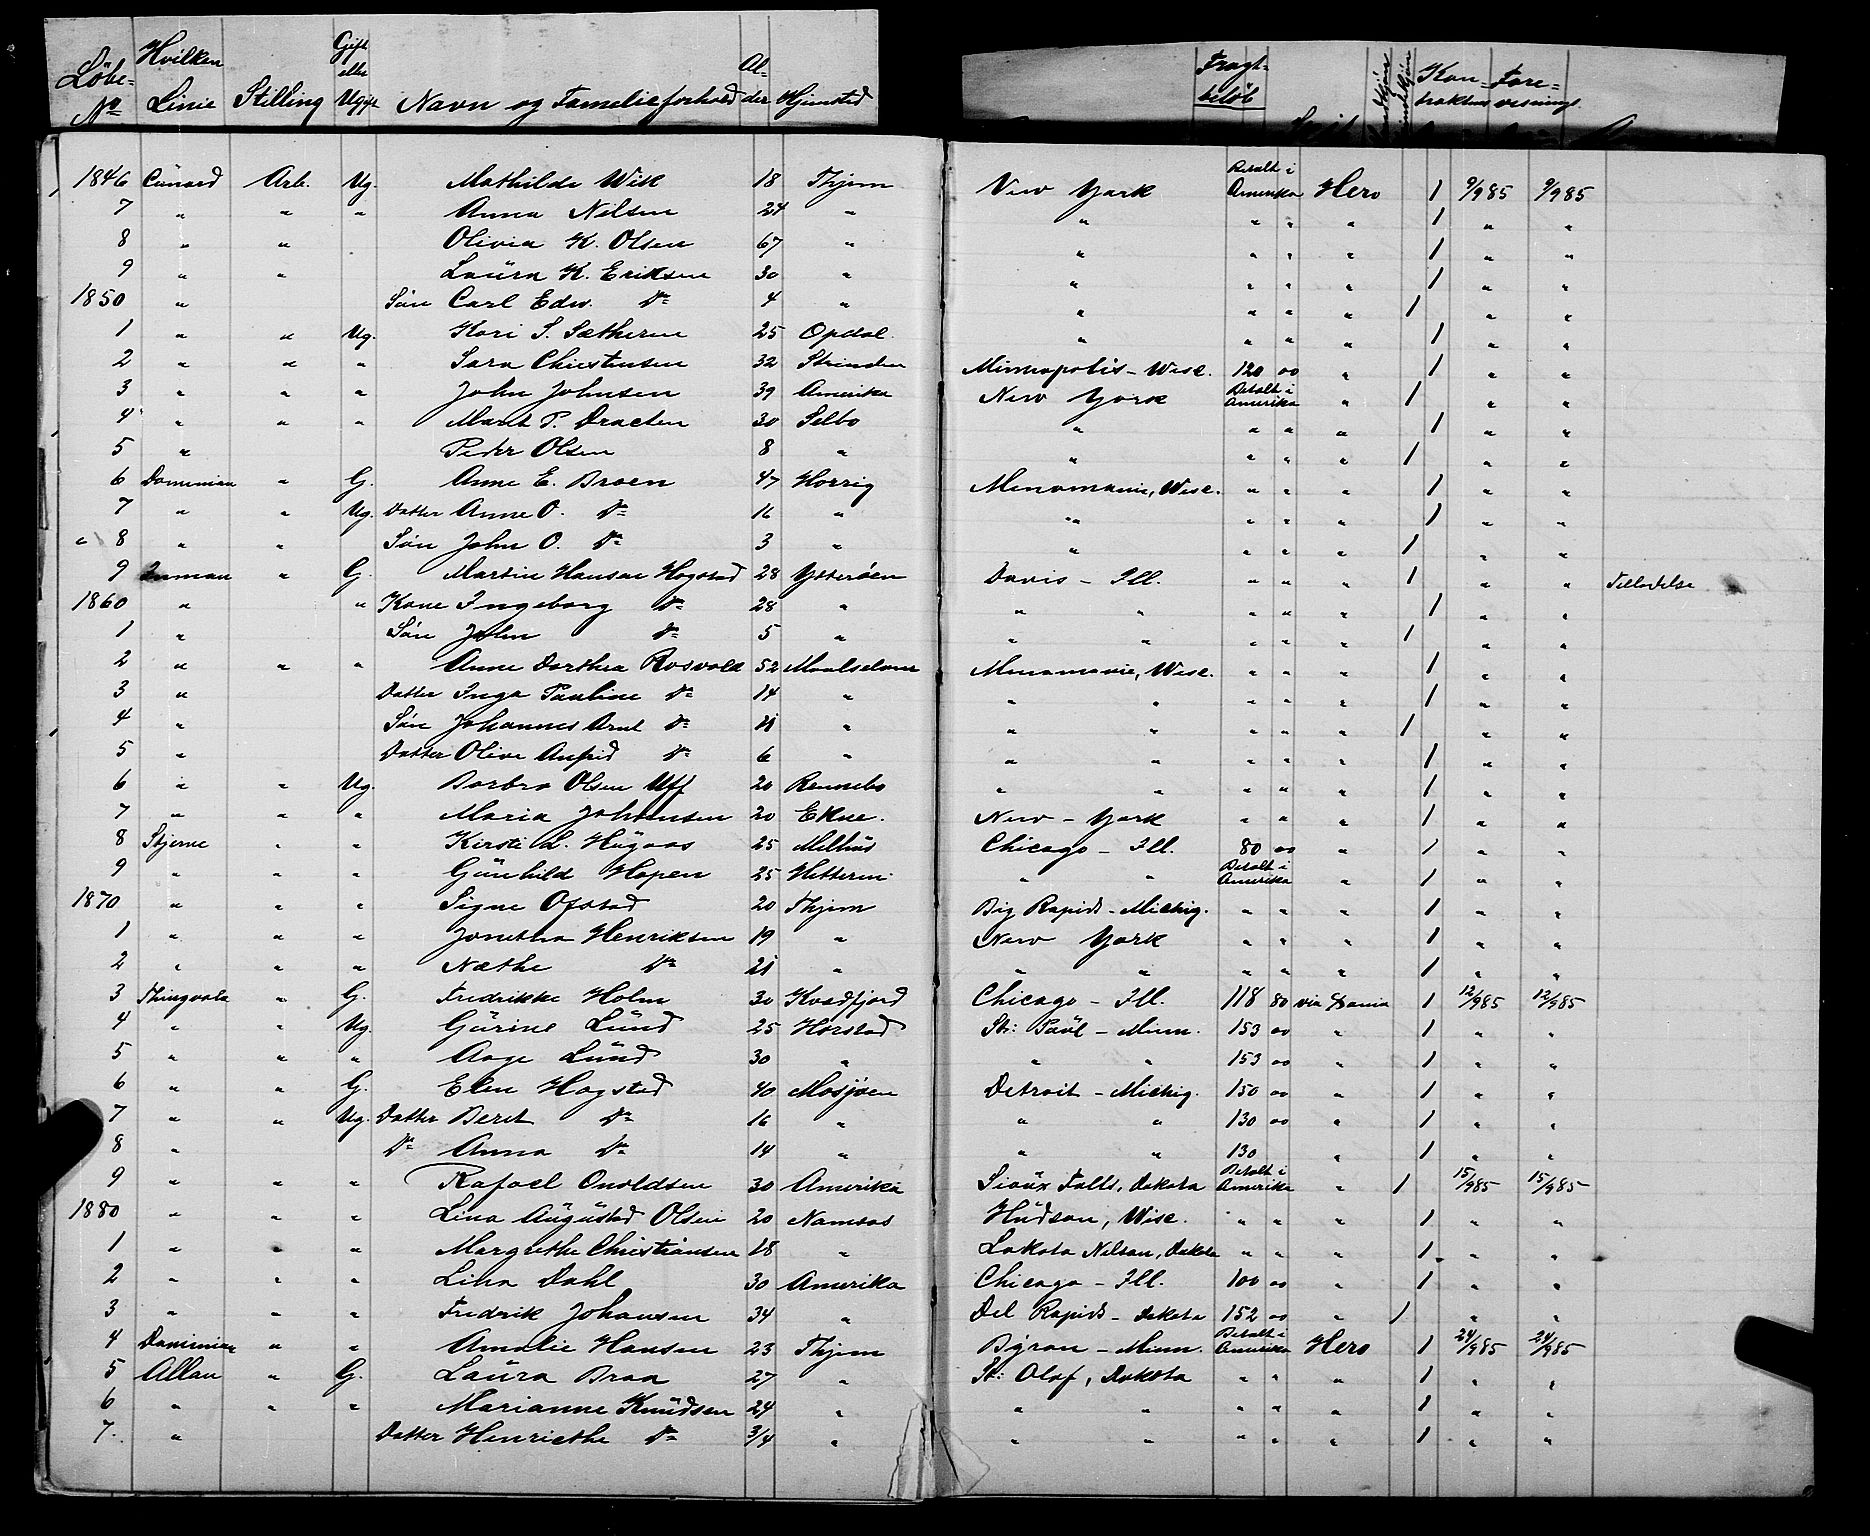 Löbe- No Hvilken Linie Stilling Gift eller Ugift Navn og Familieforhold Al- der Hjemsted Fragt- beløb Kon- traktens Fore- visnings
1846 Cunard Arb. Ug. Mathilde Wik 18 Thjem New York Betalt i Amerika Hero 1 9/9 85 9/9 85
7 " " " Anna Nelsen 24 " " " " " 1 " "
8 " " Olivia K. Olsen 67 " " " " " 1 " "
9 " " Laura K. Eriksen 30 " " " " " 1 " "
1850 " Søn Carl Edw. Do 4 " " " " " 1 " "
1 " " Ug. Kari S. Sætheren 25 Opdal " " " " 1 " "
2 " " " Sara Christensen 32 Strinden Minneapolis - Wisc. 120 00 " 1 " "
3 " " " John Johnsen 39 Amerika New York Betalt i Amerika " 1 " "
4 " " " Marit P. 30 Selbo " " " " 1 " "
5 " Peder Olsen 8 " " " " " 1 " "
6 Dominion " G. Anne E. Broen 47 Menomonie, Wisc. " " " 1 " "
7 " " Ug. Datter Anne O. Do 16 " " " " " 1 " "
8 " " Søn John O. Do 3 " " " " " 1 " "
9 Inman " G. Martin Hansen Hogstad 28 Ytterøen Davis - Ill. " " " 1 " " Tilladelse
1860 " " Kone Ingeborg Do 28 " " " " " " 1 " "
1 " Søn John Do 5 " " " " " " 1 " "
2 " " " Anne Dorthea Rosvold 52 Maalselven Menomonie, Wisc. " " " 1 " "
3 " Datter Inga Pauline Do 14 " " " " " " 1 " "
4 " Søn Johannes Arnt Do 11 " " " " " " 1 " "
5 " Datter Olive Anfrid Do 6 " " " " " " 1 " "
6 " " Ug. Barbro Olsen Uff 20 Rennebo " " " " " 1 " "
7 " " " Maria Johansen 20 Ekne. New - York " " " 1 " "
8 Stjerne " " Kirsti L. Hugaas 25 Melhus Chicago - Ill. 80 00 " 1 " "
9 " " " Gunhild Hopen 25 Hitteren " " Betalt i Amerika " 1 " "
1870 " " " Signe Ofstad 20 Thjem Big Rapids - Michig. " " " 1 " "
1 " " " Jonetha Henriksen 19 " New York " " " 1 " "
2 " " " Næthe Do 21 " " " " " " 1 " "
3 Thingvala " G. Fredrikke Holm 30 Kvadfjord Chicago - Ill. 118 80 via Dania 1 12/9 85 12/9 85
4 " " Ug. Gurine Lund 25 Harstad St: Paul - Minn. 153 00 " 1 " "
5 " " " Aage Lund 30 " " " 153 00 " 1 " "
6 " " G. Elen Hagsted 40 Mosjøen Detroit - Michig. 150 00 " 1 " "
7 " " Ug. Datter Beret Do 16 " " " 130 00 " 1 " "
8 " Do Anna Do 14 " " " 130 " 1 " "
9 " " " Rafael Onoldsen 30 Amerika Sioux Falls, Dakota Betalt i Amerika " 1 15/9 85 15/9 85
1880 " " " Lina Augustad Olsen 20 Namsos Hudson, Wisc. " " " 1 " "
1 " " " Margrethe Christiansen 18 " Lakota Nelson, Dakota " " " 1 " "
2 " " " Lina Dahl 30 Amerika Chicago - Ill. 100 00 " 1 " "
3 " " " Fredrik Johansen 34 " Del Rapids - Dakota 152 00 " 1 " "
4 Dominion " " Amalie Hansen 23 Thjem Byron - Minn. Betalt i Amerika Hero 1 24/9 85 24/9 85
5 Allan " G. Laura Braa 27 " St: Olaf, Dakota " " " 1 " "
6 " " " Marianne Knudsen 24 " " " " " " 1 " "
7. " Datter Henriethe Do 3/4 " " " " " " 1 " "